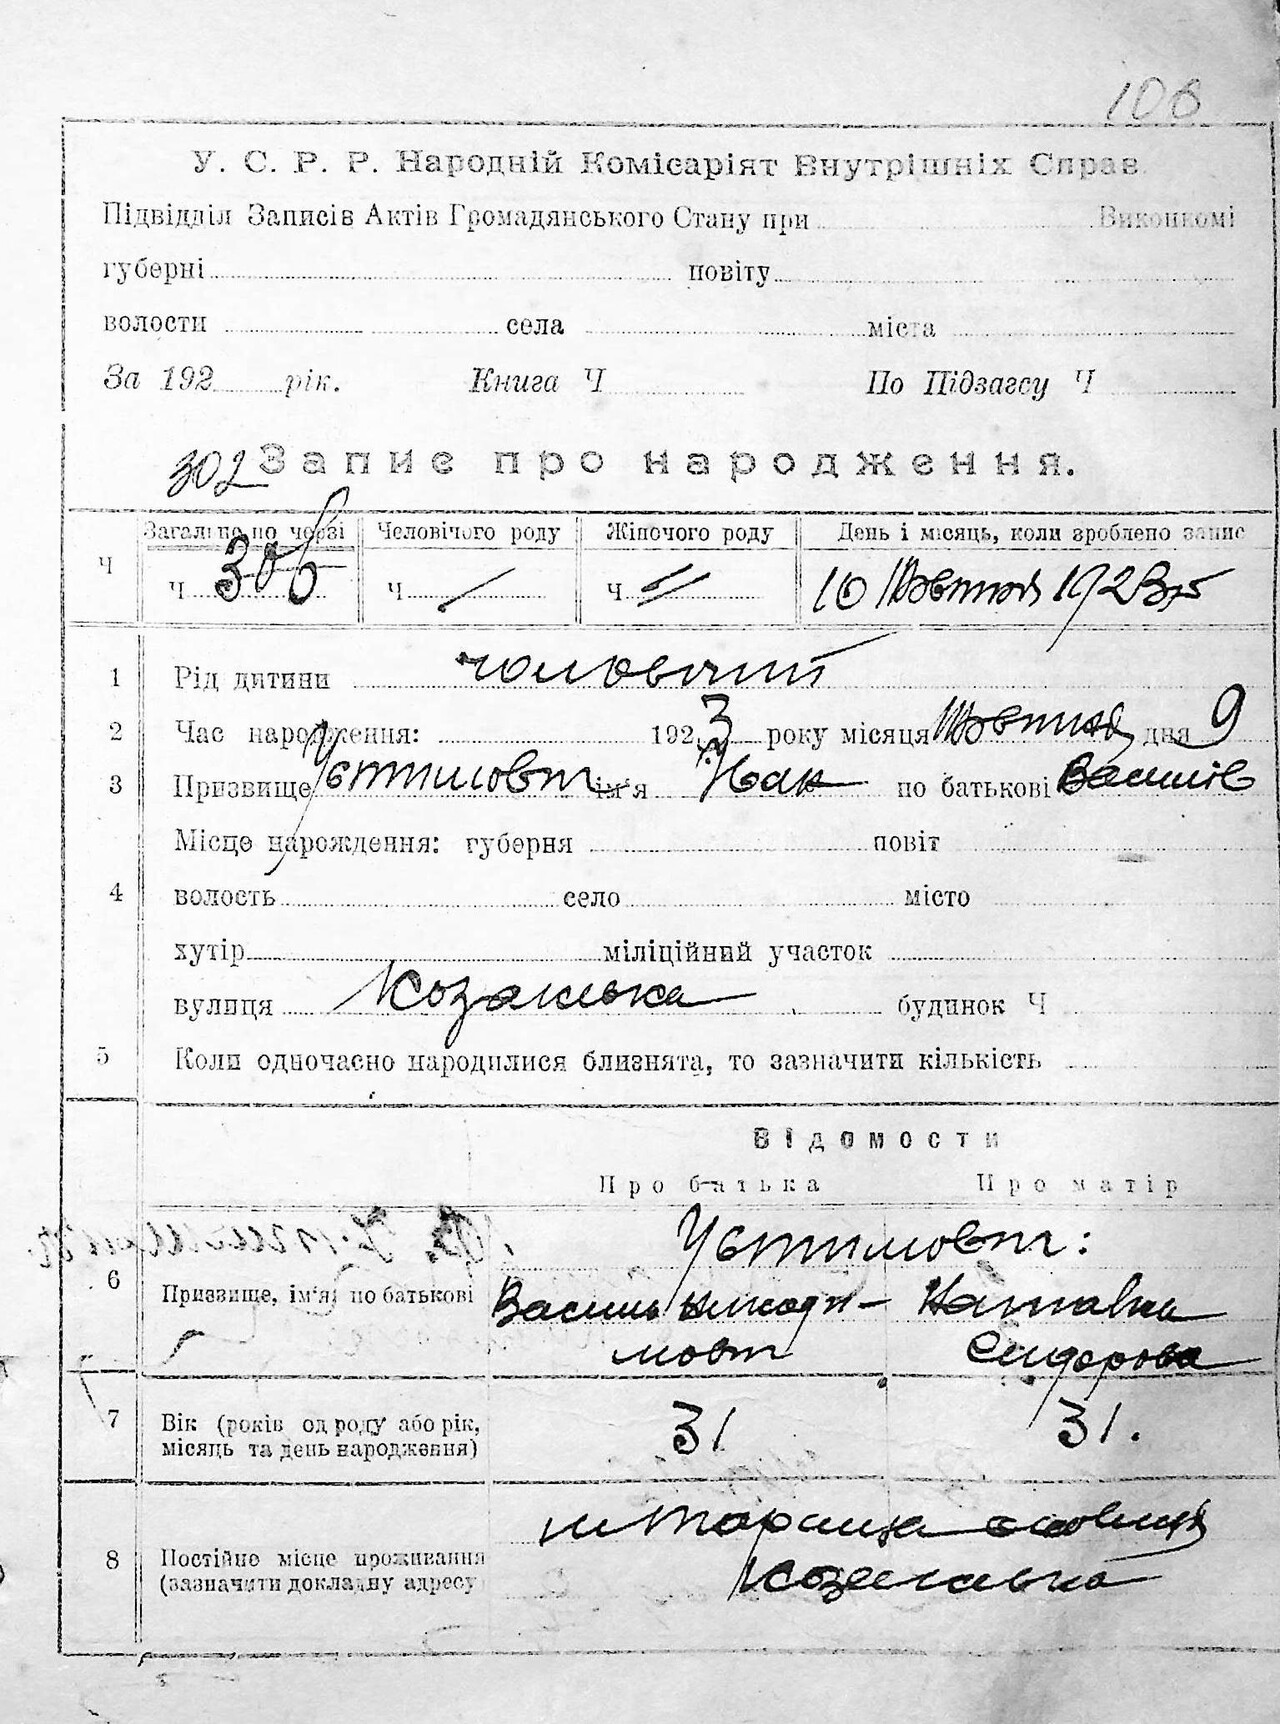 108
У. С. Р. Р. Народній Комісаріят Внутрішніх Справ
Підвідділ Записів Актів Громадянського Стану при Виконкомі
губерні повіту
волости села міста
За 192 рік. Книга Ч По Підзагсу Ч
302 Запис про народження.
Загально по черзі Человічого роду Жіночого роду День і місяць, коли зроблено запис
Ч Ч 306 Ч Ч 10 Жовтня 1923 р
1 Рід дитини чоловічий
2 Час народження: 1923 року місяця Жовтня дня 9
3 Призвище Устимович ім'я по батькові Василів
Місце нарождення: губерня повіт
4 волость село місто
хутір міліційний участок
вулиця Козацька будинок Ч
5 Коли одночасно народилися близнята, то зазначити кількість
Відомости
Про батька Про матір
Устимович:
6 Призвище, ім'я, по батькові Василь Никоди- Наталка
мович Сидорова
7 Вік (років од роду або рік, 31 31.
місяць та день народження)
8 Постійне місце проживання
(зазначити докладну адресу Козацька